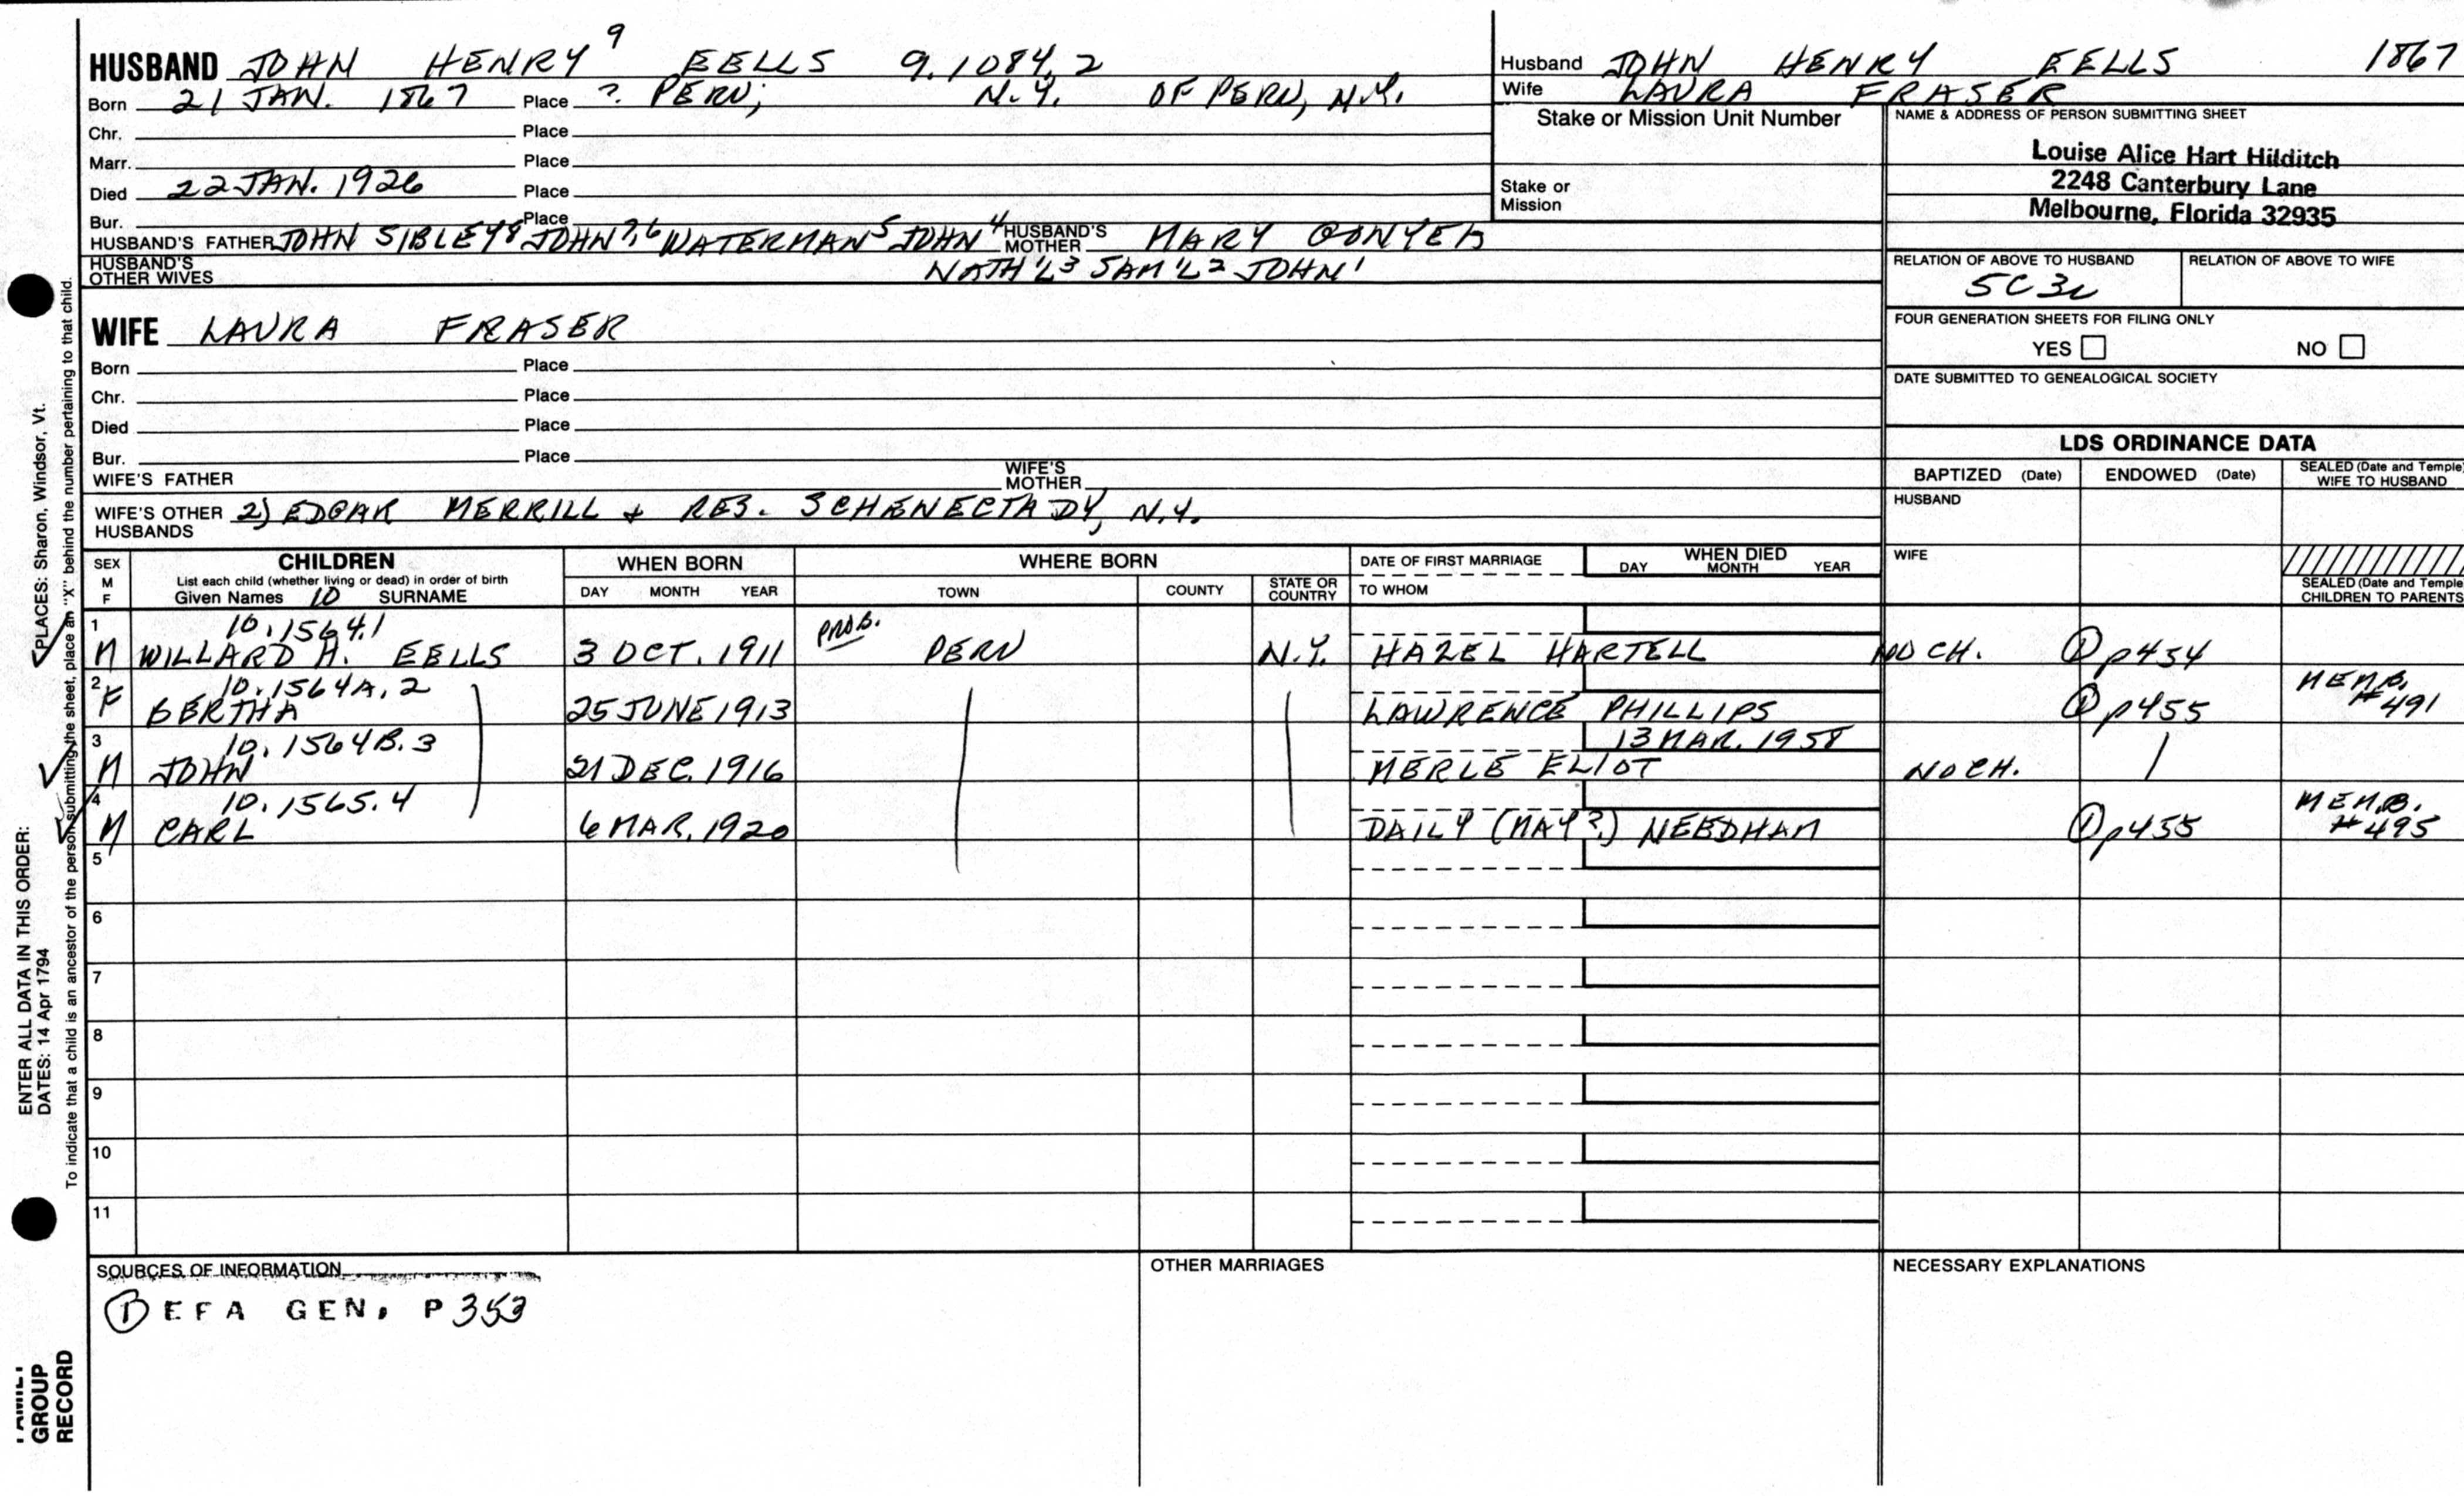 HUSBAND JOHN HENRY 9 EELLS 9.1084.2
Born 21 JAN. 1867 Place ? PERU, N.Y. OF PERU, N.Y.
Chr. Place
Marr. Place
Died 22 JAN. 1926 Place
Bur. Place
HUSBAND'S FATHER JOHN SIBLEY 8 JOHN 7,6 WATERMAN 5 JOHN 4 HUSBAND'S MOTHER MARY
HUSBAND'S OTHER WIVES NATH'L 3 SAM'L 2 JOHN 1
Husband JOHN HENRY EELLS 1867
Wife LAURA FRASER
Stake or Mission Unit Number
Stake or Mission
NAME & ADDRESS OF PERSON SUBMITTING SHEET
Louise Alice Hart Hilditch
2248 Canterbury Lane
Melbourne, Florida 32935
RELATION OF ABOVE TO HUSBAND RELATION OF ABOVE TO WIFE
5C3R
FOUR GENERATION SHEETS FOR FILING ONLY
YES NO
DATE SUBMITTED TO GENEALOGICAL SOCIETY
WIFE LAURA FRASER
Born Place
Chr. Place
Died Place
Bur. Place
WIFE'S FATHER WIFE'S MOTHER
WIFE'S OTHER HUSBANDS 2) EDGAR MERRILL & RES. SCHENECTADY, N.Y.
LDS ORDINANCE DATA
BAPTIZED (Date) ENDOWED (Date) SEALED (Date and Temple) WIFE TO HUSBAND
HUSBAND
WIFE
SEALED (Date and Temple) CHILDREN TO PARENTS
SEX M F
CHILDREN
List each child (whether living or dead) in order of birth
Given Names 10 SURNAME
WHEN BORN
DAY MONTH YEAR
WHERE BORN
TOWN COUNTY STATE OR COUNTRY
DATE OF FIRST MARRIAGE
TO WHOM
WHEN DIED
DAY MONTH YEAR
1 10.1564.1 PROB.
M WILLARD H. EELLS 3 OCT. 1911 PERU N.Y. HAZEL HARTELL NO CH. ① p454
2 10.1564A.2 MEMB.
F BERTHA 25 JUNE 1913 LAWRENCE PHILLIPS ① p455 #491
3 10.1564B.3 13 MAR. 1958
M JOHN 21 DEC. 1916 MERLE ELIOT NO CH.
4 10.1565.4 MEMB.
M CARL 6 MAR. 1920 DAILY (MAY?) NEEDHAM ① p455 #495
5
6
7
8
9
10
11
SOURCES OF INFORMATION
① EFA GEN. P353
OTHER MARRIAGES
NECESSARY EXPLANATIONS
ENTER ALL DATA IN THIS ORDER:
DATES: 14 Apr 1794
PLACES: Sharon, Windsor, Vt.
To indicate that a child is an ancestor of the person submitting the sheet, place an "X" behind the number pertaining to that child.
FAMILY
GROUP
RECORD